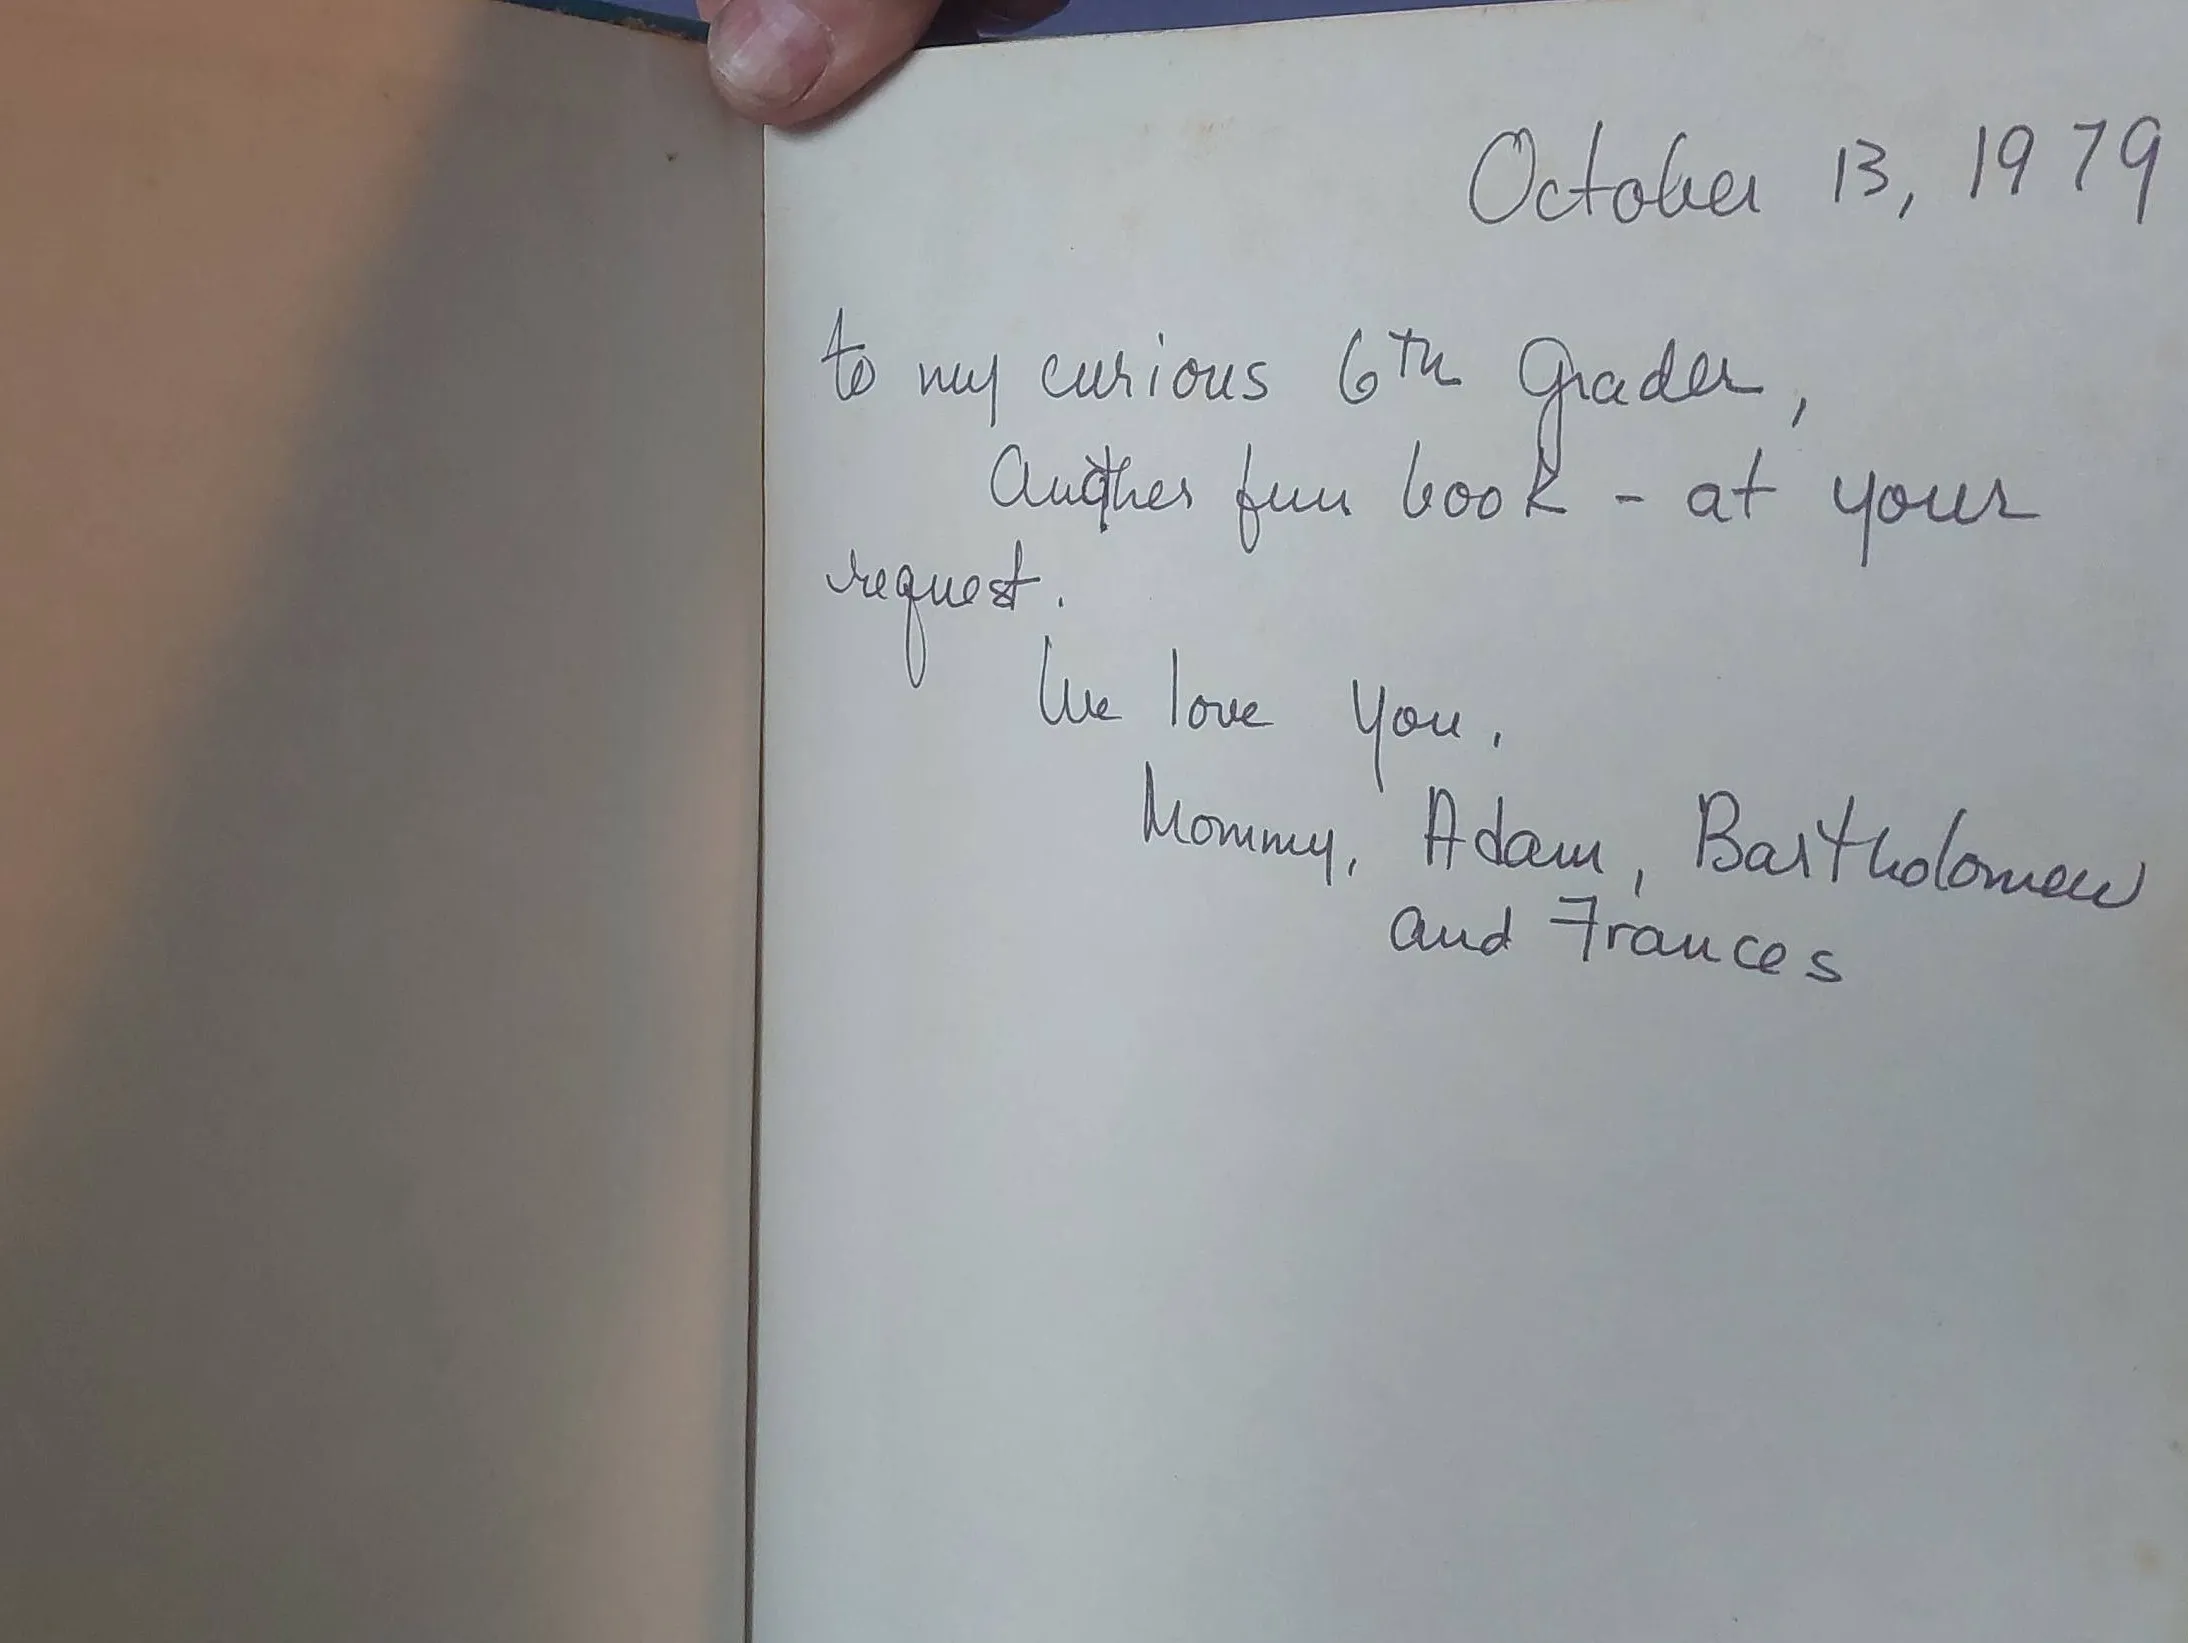 October 13, 1979
to my curious 6th Grader,
Another fun book - at your
request.
We love you.
Mommy, Adam, Bartholomew
and Frances